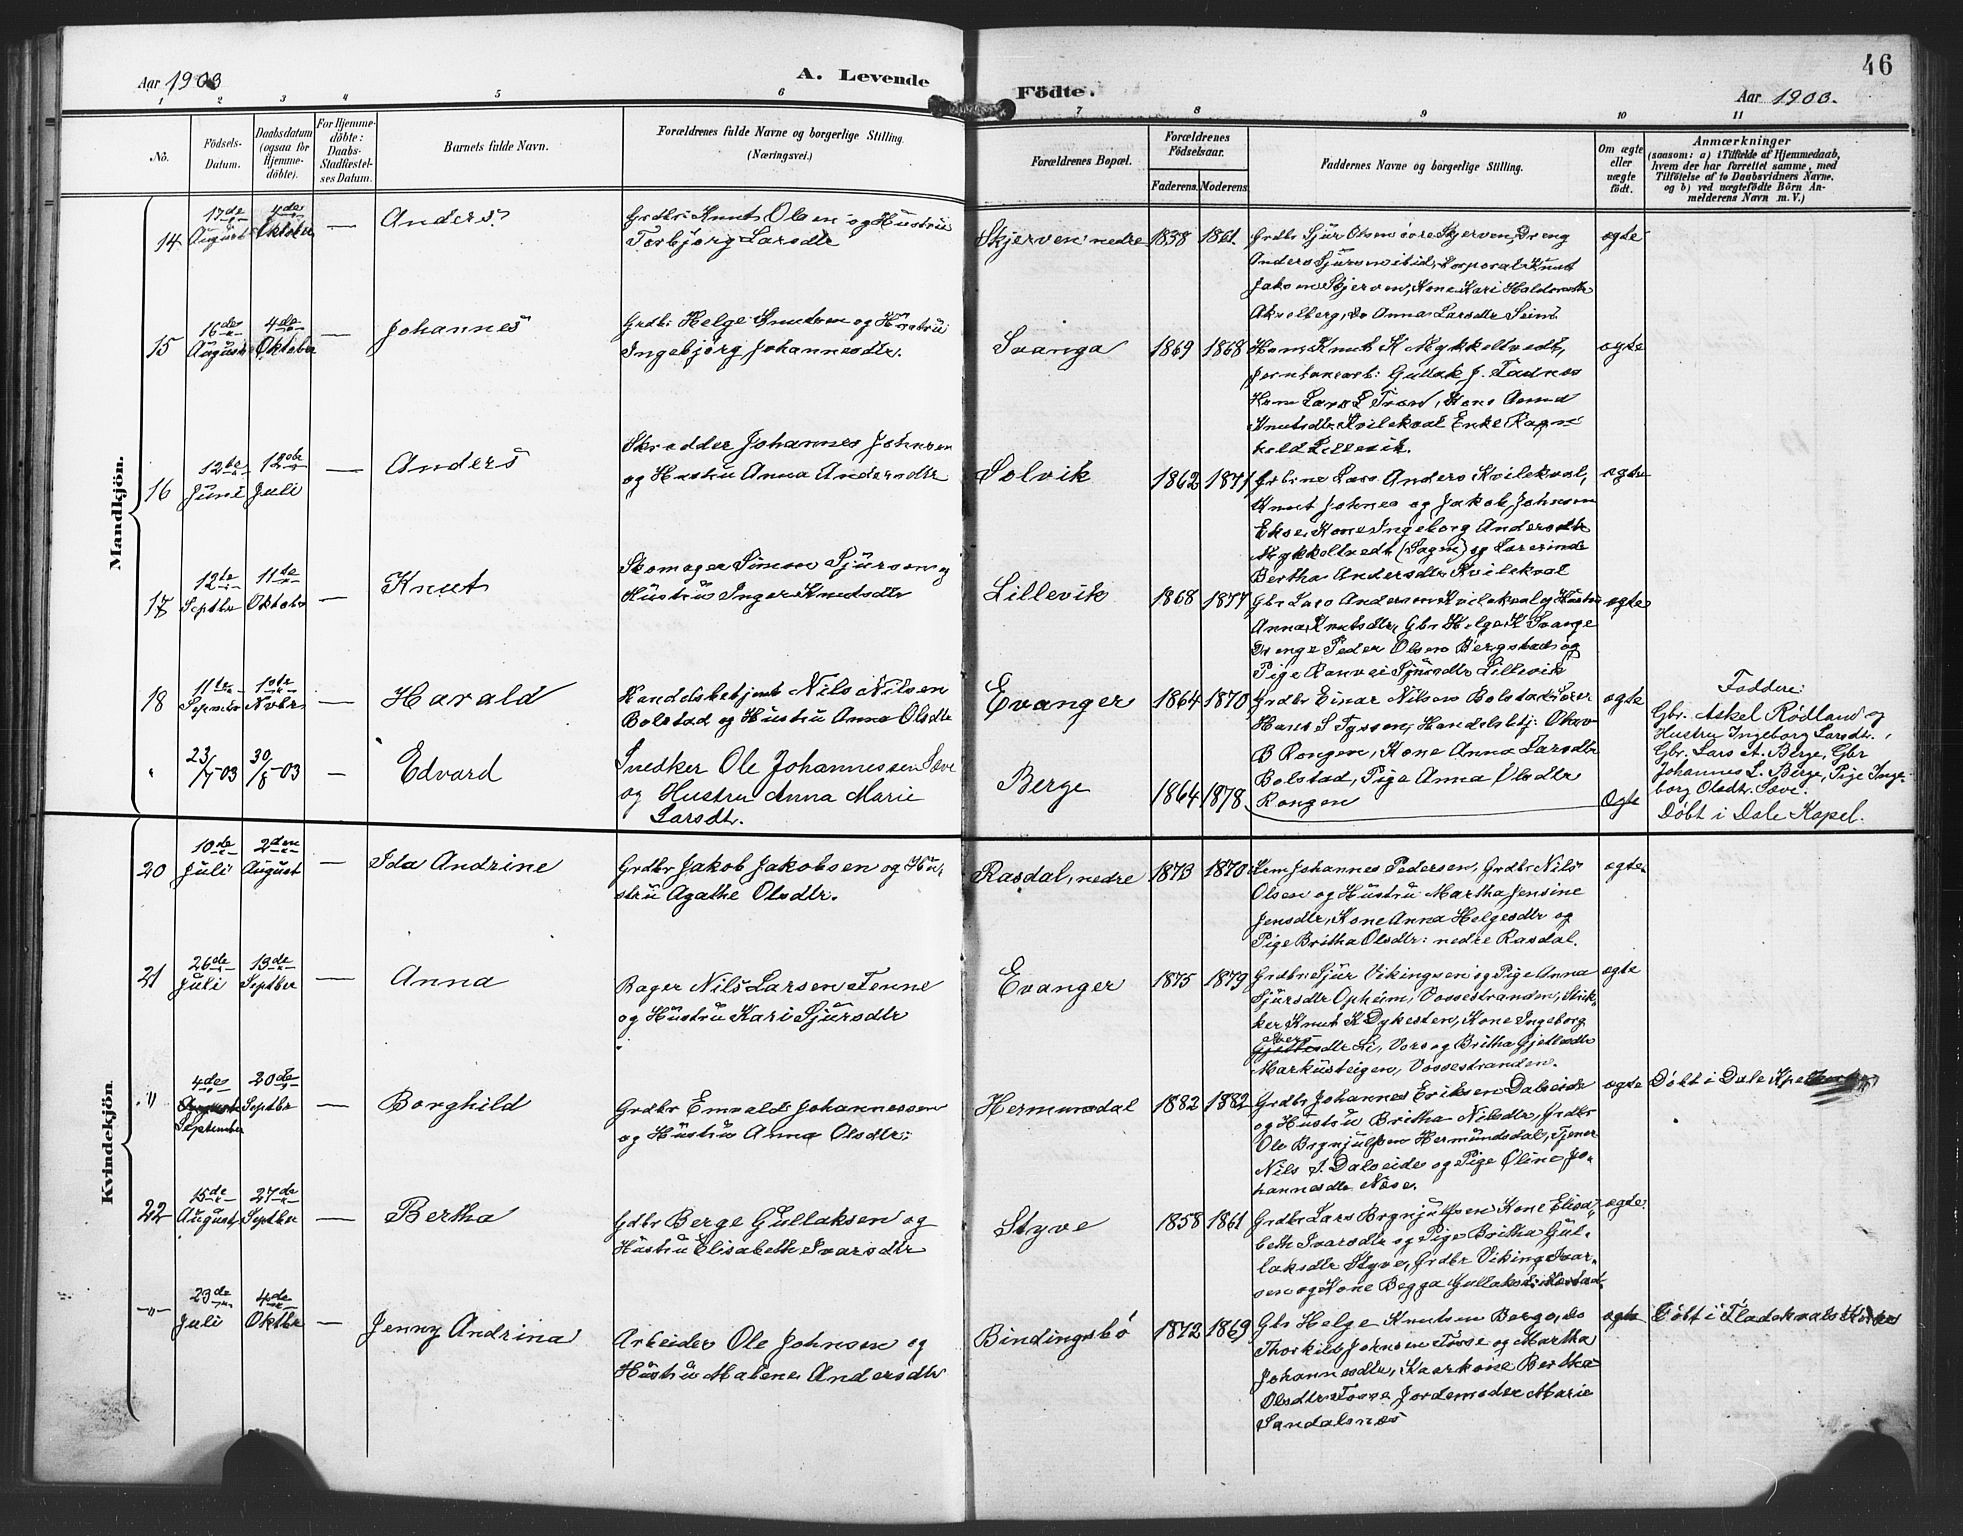 46
Aar 1903
A. Levende
Födte.
Aar 1903.
1 2 3 4 5 6 7 8 9 10 11
No.
Födsels-
Datum.
Daabsdatum
(ogsaa for
Hjemme-
döbte).
For Hjemme-
döbte:
Daabs-
Stadfæstel-
ses Datum.
Barnets fulde Navn.
Forældrenes fulde Navne og borgerlige Stilling.
(Næringsvei.)
Forældrenes Bopæl.
Forældrenes
Födselsaar.
Faderens.
Moderens.
Faddernes Navne og borgerlige Stilling.
Om ægte
eller
uægte
födt.
Anmærkninger
(saasom: a) i Tilfælde af Hjemmedaab,
hvem der har forrettet samme, med
Tilföielse af to Daabsvidners Navne.
og b) ved uægtefödte Börn An-
melderens Navn m. V.)
Mandkjön.
14
17de
August
4de
Oktober
—
Anders.
Grdbr: Knut Olsen og Hustru
Torbjørg Larsdtr
Skjerven nedre
1838
1861.
Grdbr Sjur Olsen øvre Skjerven, Dreng
Anders Sjursen ibid, Korporal Knut
Jaksen Skjerven, Kone Kari Haldorsdtr
Akselberg, Do Anna Larsdtr Seim
ægte
15
16de
August
4de
Oktober
—
Johannes
Grdbr: Helge Knudsen og Hustru
Ingebjørg Johannesdtr.
Svanga
1869
1868
Knut K Mykkeltvedt,
Jernbanearb: Gullak J. Fadnes
Lars L Kone
Knutsdtr Kvilekval Enke Ragn
hild Lillevik.
ægte
16
12te
Juni
12te
Juli
—
Anders
Skredder Johannes Johnsen
og Hustru Anna Andersdtr
Solvik
1862
1871
Grbrne Lars Anders Kvilekval,
Knut Johnes og Jakob Johnsen
Ekse, Kone Ingeborg Andersdtr
Mykkeltvedt (Sagen) og Lærerinde
Bertha Andersdtr Kvilekval
ægte
17
12te
Septbr
11te
Oktobr
—
Knut
Skomager Simon Sjursen og
Hustru Inger Knutsdtr
Lillevik
1868
1877
Gbr Lars Andersen Kvilekval og Hustru
Anna Knutsdtr, Gbr Helge K Svange
Drenge Peder Olsen Bergstad og
Pige Ranvei Sjursdtr Lillevik
ægte
18
11te
10de
Nvbr
—
Harald
Handelsbetjent Nils Nilsen
Bolstad og Hustru Anna Olsdtr
Evanger
1864
1870
Grdbr Einar Nilsen Bolstad, Lærer
Hans S Tyssen, Handelsbtj: Olav
B Rongen, Kone Anna Larsdtr
Bolstad, Pige Anna Olsdtr
Rongen
ægte
Faddere:
Gbr. Askel Rødland og
Hustru Ingeborg Larsdtr.,
Gbr. Lars A. Berge, Gbr
Johannes L. Berge, Pige Inge-
borg Olsdtr. Sæve.
Döbt i Dale Kapel.
"
23/7 03
30/8 03
—
Edvard
Snedker Ole Johannessen Sæve
og Hustru Anna Marie
Larsdtr.
Berge
1864
1878
Ægte
Kvindekjön.
20
10de
Juli
2den
August
—
Ida Andrine
Grdbr Jakob Jakobsen og Hu-
stru Agathe Olsdtr.
Rasdal, nedre
1873
1870
Johannes Pedersen, Grdbr Nils
Olsen og Hustru Martha Jensine
Jensdtr, Kone Anna Helgesdtr og
Pige Britha Olsdtr: nedre Rasdal.
ægte
21
26de
Juli
13de
Septber
—
Anna
Bager Nils Larsen Tenne
og Hustru Kari Sjursdtr
Evanger
1875
1879
Grdbr: Sjur Vikingsen og Pige Anna
Sjursdtr Opheim, Vossestranden, Strik-
ker Knut K Dykesten, Kone Ingeborg
Li, Vors og Britha Gjetlesdtr
Markusteigen, Vossestranden.
ægte
"
4de
August
September
20de
Septbr
—
Borghild
Grdbr Emvald Johannessen
og Hustru Anna Olsdtr:
Hermunsdal
1882
1882
Grdbr Johannes Eriksen Dalseide
og Hustru Britha Nilsdtr, Grdbr
Ole Brynjulfsen Hermundsdal, Tjener
Nils J. Dalseide og Pige Oline Jo-
hannesdtr Næse.
ægte
Döbt i Dale
22
15de
August
27de
Septbr
—
Bertha
Gdbr Berge Gullaksen og
Hustru Elisabeth Ivarsdtr
Styve
1858
1861
Grdbr Lars Brynjulfsen Kone Elisa-
beth Ivarsdtr og Pige Britha Gul-
laksdtr Styve, Grdbr Viking Ivar-
sen og Kone Begga Gullaksdtr
ægte.
"
23de
Juli
4de
Oktbr
—
Jenny Andrina
Arbeider Ole Johnsen og
Hustru Malene Andersdtr
Bindingsbø
1872
1869
Gbr Helge Knutsen Berge, Do
Thorkild Johnsen Fosse og Martha
Johannesdtr, Kaarkone Bertha
Olsdtr Fosse, Jordemoder Marie
Sandalsnæs
ægte
Döbt i Fladekvals Kirke